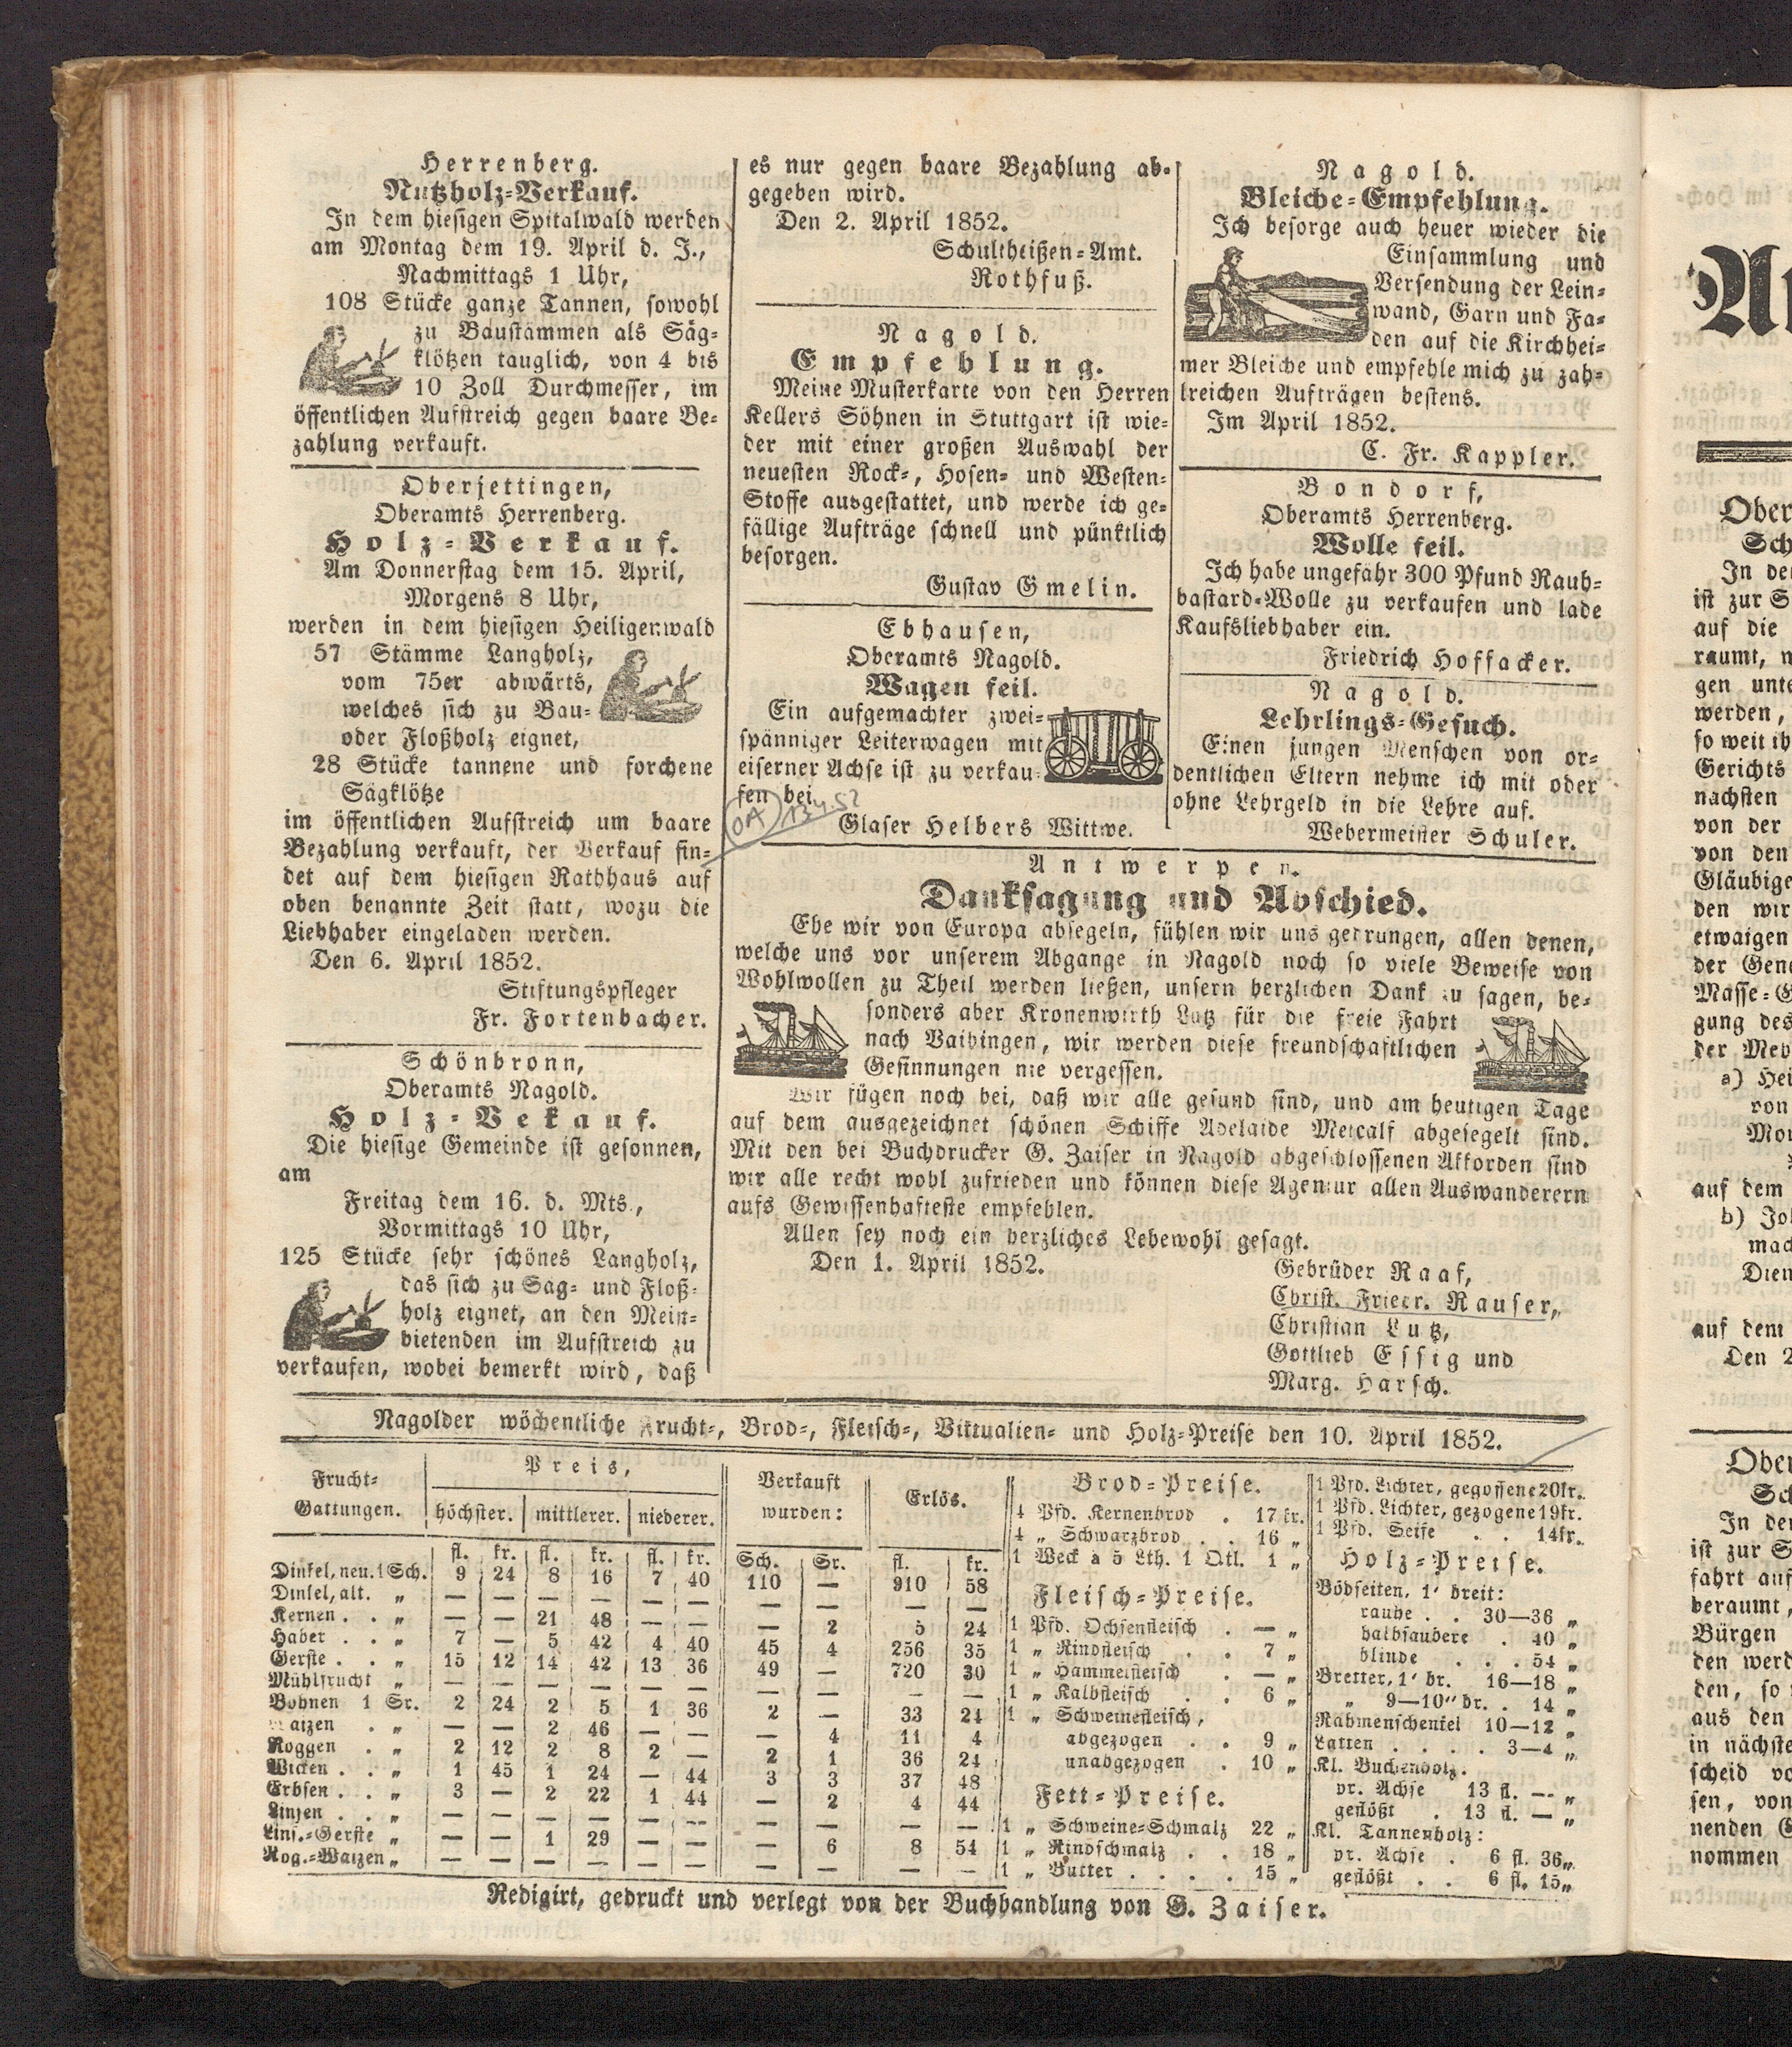 Herrenberg.
Nutzholz-Verkauf.
In dem hiesigen Spitalwald werden
am Montag dem 19. April d. J.,
Nachmittags 1 Uhr,
108 Stücke ganze Tannen, sowohl
zu Baustämmen als Säg-
klötzen tauglich, von 4 bis
10 Zoll Durchmesser, im
öffentlichen Aufstreich gegen baare Be-
zahlung verkauft.
Oberjettingen,
Oberamts Herrenberg.
Holz-Verkauf.
Am Donnerstag dem 15. April,
Morgens 8 Uhr,
werden in dem hiesigen Heiligenwald
57 Stämme Langholz,
vom 75er abwärts,
welches sich zu Bau-
oder Floßholz eignet,
28 Stücke tannene und forchene
Sägklötze
im öffentlichen Aufstreich um baare
Bezahlung verkauft, der Verkauf fin-
det auf dem hiesigen Rathhaus auf
oben benannte Zeit statt, wozu die
Liebhaber eingeladen werden.
Den 6. April 1852.
Stiftungspfleger
Fr. Fortenbacher.
Schönbronn,
Oberamts Nagold.
Holz-Vekauf.
Die hiesige Gemeinde ist gesonnen,
am
Freitag dem 16. d. Mts.,
Vormittags 10 Uhr,
125 Stücke sehr schönes Langholz,
das sich zu Säg- und Floß-
holz eignet, an den Meist-
bietenden im Aufstreich zu
verkaufen, wobei bemerkt wird, daß
es nur gegen baare Bezahlung ab-
gegeben wird.
Den 2. April 1852.
Schultheißen-Amt.
Rothfuß.
Nagold.
Empfehlung.
Meine Musterkarte von den Herren
Kellers Söhnen in Stuttgart ist wie-
der mit einer großen Auswahl der
neuesten Rock-, Hosen- und Westen-
Stoffe ausgestattet, und werde ich ge-
fällige Aufträge schnell und pünktlich
besorgen.
Gustav Gmelin.
Ebhausen,
Oberamts Nagold.
Wagen feil.
Ein aufgemachter zwei-
spänniger Leiterwagen mit
eiserner Achse ist zu verkau-
fen bei
Glaser Helbers Wittwe.
Nagold.
Bleiche-Empfehlung.
Ich besorge auch heuer wieder die
Einsammlung und
Versendung der Lein-
wand, Garn und Fa-
den auf die Kirchhei-
mer Bleiche und empfehle mich zu zah-
lreichen Aufträgen bestens.
Im April 1852.
C. Fr. Kappler.
Bondorf,
Oberamts Herrenberg.
Wolle feil.
Ich habe ungefähr 300 Pfund Rauh-
bastard-Wolle zu verkaufen und lade
Kaufsliebhaber ein.
Friedrich Hoffacker.
Nagold.
Lehrlings-Gesuch.
Einen jungen Menschen von or-
dentlichen Eltern nehme ich mit oder
ohne Lehrgeld in die Lehre auf.
Webermeister Schuler.
Antwerpen.
Danksagung und Abschied.
Ehe wir von Europa absegeln, fühlen wir uns gedrungen, allen denen,
welche uns vor unserem Abgange in Nagold noch so viele Beweise von
Wohlwollen zu Theil werden ließen, unsern herzlichen Dank zu sagen, be-
sonders aber Kronenwirth Lutz für die freie Fahrt
nach Vaihingen, wir werden diese freundschaftlichen
Gesinnungen nie vergessen.
Wir fügen noch bei, daß wir alle gesund sind, und am heutigen Tage
auf dem ausgezeichnet schönen Schiffe Adelaide Metcalf abgesegelt sind.
Mit den bei Buchdrucker G. Zaiser in Nagold abgeschlossenen Akkorden sind
wir alle recht wohl zufrieden und können diese Agentur allen Auswanderern
aufs Gewissenhafteste empfehlen.
Allen sey noch ein herzliches Lebewohl gesagt.
Den 1. April 1852.
Gebrüder Raaf,
Christ. Friedr. Rauser,
Christian Lutz,
Gottlieb Essig und
Marg. Harsch.
Nagolder wöchentliche Frucht-, Brod-, Fleisch-, Viktualien- und Holz-Preise den 10. April 1852.
Frucht-Gattungen. Preis, Verkauft wurden: Erlös.
höchster. mittlerer. niederer.
fl. kr. fl. kr. fl. kr. Sch. Sr. fl. kr.
Dinkel, neu. 1 Sch. 9 24 8 16 7 40 110 — 910 58
Dinkel, alt. „ — — — — — — — — — —
Kernen . . „ — — 21 48 — — — 2 5 24
Haber . . „ 7 — 5 42 4 40 45 4 256 35
Gerste . . „ 15 12 14 42 13 36 49 — 720 30
Mühlfrucht „ — — — — — — — — — —
Bohnen 1 Sr. 2 24 2 5 1 36 2 — 33 24
Waizen . „ — — 2 46 — — — 4 11 4
Roggen . „ 2 12 2 8 2 — 2 1 36 24
Wicken . . „ 1 45 1 24 — 44 3 3 37 48
Erbsen . . „ 3 — 2 22 1 44 — 2 4 44
Linsen . . „ — — — — — — — — — —
Lins.-Gerste „ — — 1 29 — — — 6 8 54
Rog.-Waizen „ — — — — — — — — — —
Brod-Preise.
4 Pfd. Kernenbrod . 17 kr.
4 „ Schwarzbrod . . 16 „
1 Weck à 5 Lth. 1 Qtl. 1 „
Fleisch-Preise.
1 Pfd. Ochsenfleisch . — „
1 „ Rindfleisch . . 7 „
1 „ Hammelfleisch . — „
1 „ Kalbfleisch . . 6 „
1 „ Schweinefleisch,
abgezogen . . 9 „
unabgezogen . 10 „
Fett-Preise.
1 „ Schweine-Schmalz 22 „
1 „ Rindschmalz . . 18 „
1 „ Butter . . . . 15 „
1 Pfd. Lichter, gegossene 20kr.
1 Pfd. Lichter, gezogene 19kr.
1 Pfd. Seife . . 14kr.
Holz-Preise.
Bödseiten, 1' breit:
rauhe . . 30—36 „
halbsaubere . 40 „
blinde . . . 54 „
Bretter, 1' br. 16—18 „
„ 9—10" br. . 14 „
Rahmenschenkel 10—12 „
Latten . . . . 3—4 „
Kl. Buchenholz.
pr. Achse 13 fl. — „
geflößt . 13 fl. — „
Kl. Tannenholz:
pr. Achse . 6 fl. 36 „
geflößt . . 6 fl. 15 „
Redigirt, gedruckt und verlegt von der Buchhandlung von G. Zaiser.
Ober
Sch
In de
ist zur S
auf die
raumt,
gen unte
werden,
so weit ih
Gerichts
nächsten
von der
von den
Gläubige
den wir
etwaigen
der Gen
Masse-G
gung des
der Meh
a) Hei
von
auf dem
auf dem
In de
ist zur S
fahrt auf
beraumt,
Bürgen
den werd
den, so
aus den
in nächste
scheid vo
sen, von
nenden G
nommen